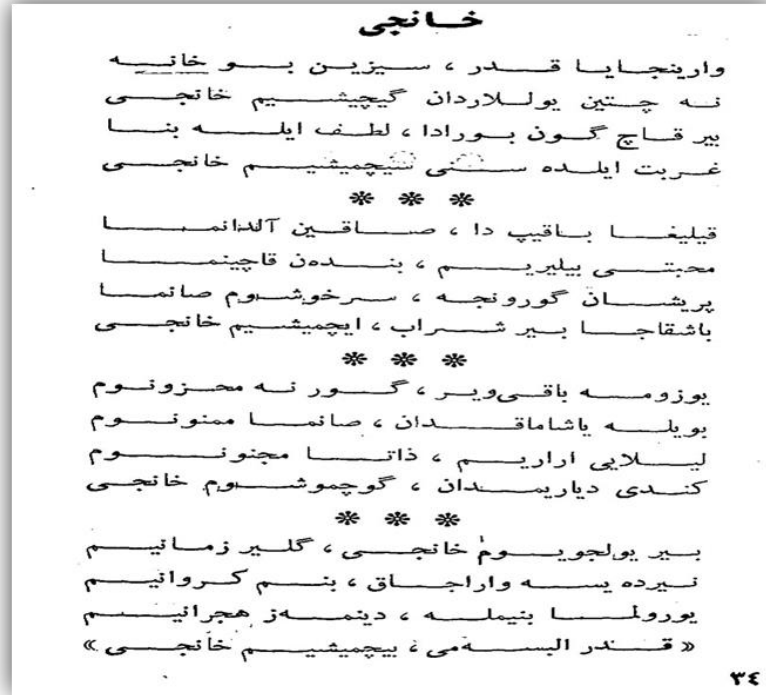 خانجی
وارینجایا قدر ، سیزین بو خانه
نه چتین یوللاردان گیچیشیم خانجی
بیر قاچ گون بورادا ، لطف ایله بنا
غربت ایلده سنی سیچمیشیم خانجی
❋ ❋ ❋
قیلیغا باقیپ دا ، صاقین آلدانما
محبتی بیلیریم ، بنده‌ن قاچینما
پریشان گورونجه ، سرخوشوم صانما
باشقاجا بیر شراب ، ایچمیشیم خانجی
❋ ❋ ❋
یوزومه باقی‌ویر ، گور نه محزونوم
بویله یاشاماقدان ، صانما ممنونوم
لیلایی اراریم ، ذاتا مجنونوم
کندی دیاریمدان ، گوچموشوم خانجی
❋ ❋ ❋
بیر یولجویوم خانجی ، گلیر زمانیم
نیرده یسه واراجاق ، بنم کروانیم
یورولما بنیمله ، دینمه‌ز هجرانیم
« قدر البسه‌می ، بیچمیشیم خانجی »
٣٤